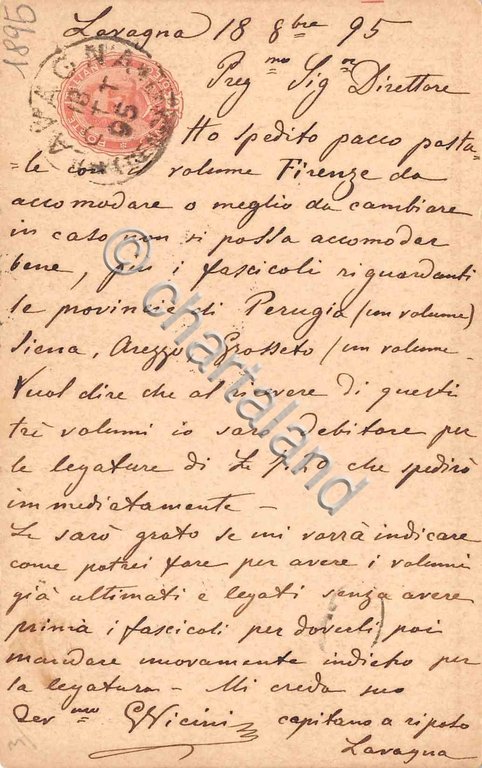 1895
Lavagna 18 8bre 95
Preg mo Sig re Direttore
LAVAGNA
18 OTT 95
Ho spedito pacco posta-
=le con il volume Firenze da
accomodare o meglio da cambiare
in caso non si possa accomodar
bene, più i fascicoli riguardanti
le provincie di Perugia (un volume)
Siena, Arezzo, Grosseto (un volume
Vuol dire che al ricevere di questi
tre volumi io sarò debitore per
le legature di £ che spedirò
immediatamente —
Le sarò grato se mi vorrà indicare
come potrei fare per avere i volumi
già ultimati e legati senza avere
prima i fascicoli per doverli poi
mandare nuovamente indietro per
la legatura — Mi creda suo
Dev mo GVicini capitano a riposo
Lavagna
© chartaland